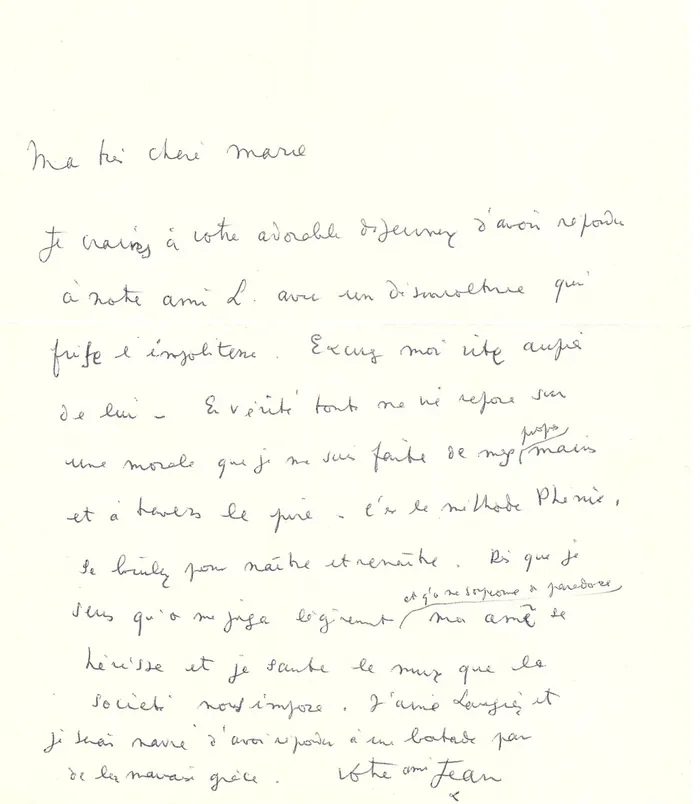 Ma très chère Marie
Je crains à votre adorable déjeuner d'avoir répondu
à notre ami L. avec une désinvolture qui
frise l'impolitesse. Excusez moi vite auprès
de lui – En vérité toute ma vie repose sur
une morale que je me suis faite de mes propres mains
et à travers le pire – C'est la méthode Phénix,
se brûler pour naître et renaître. Dès que je
sens qu'on me juge légèrement et qu'on me soupçonne de paradoxe mon âme se
hérisse et je saute le mur que la
société nous impose. J'aime et
je serais navré d'avoir répondu à une boutade par
de la mauvaise grâce. Votre ami Jean